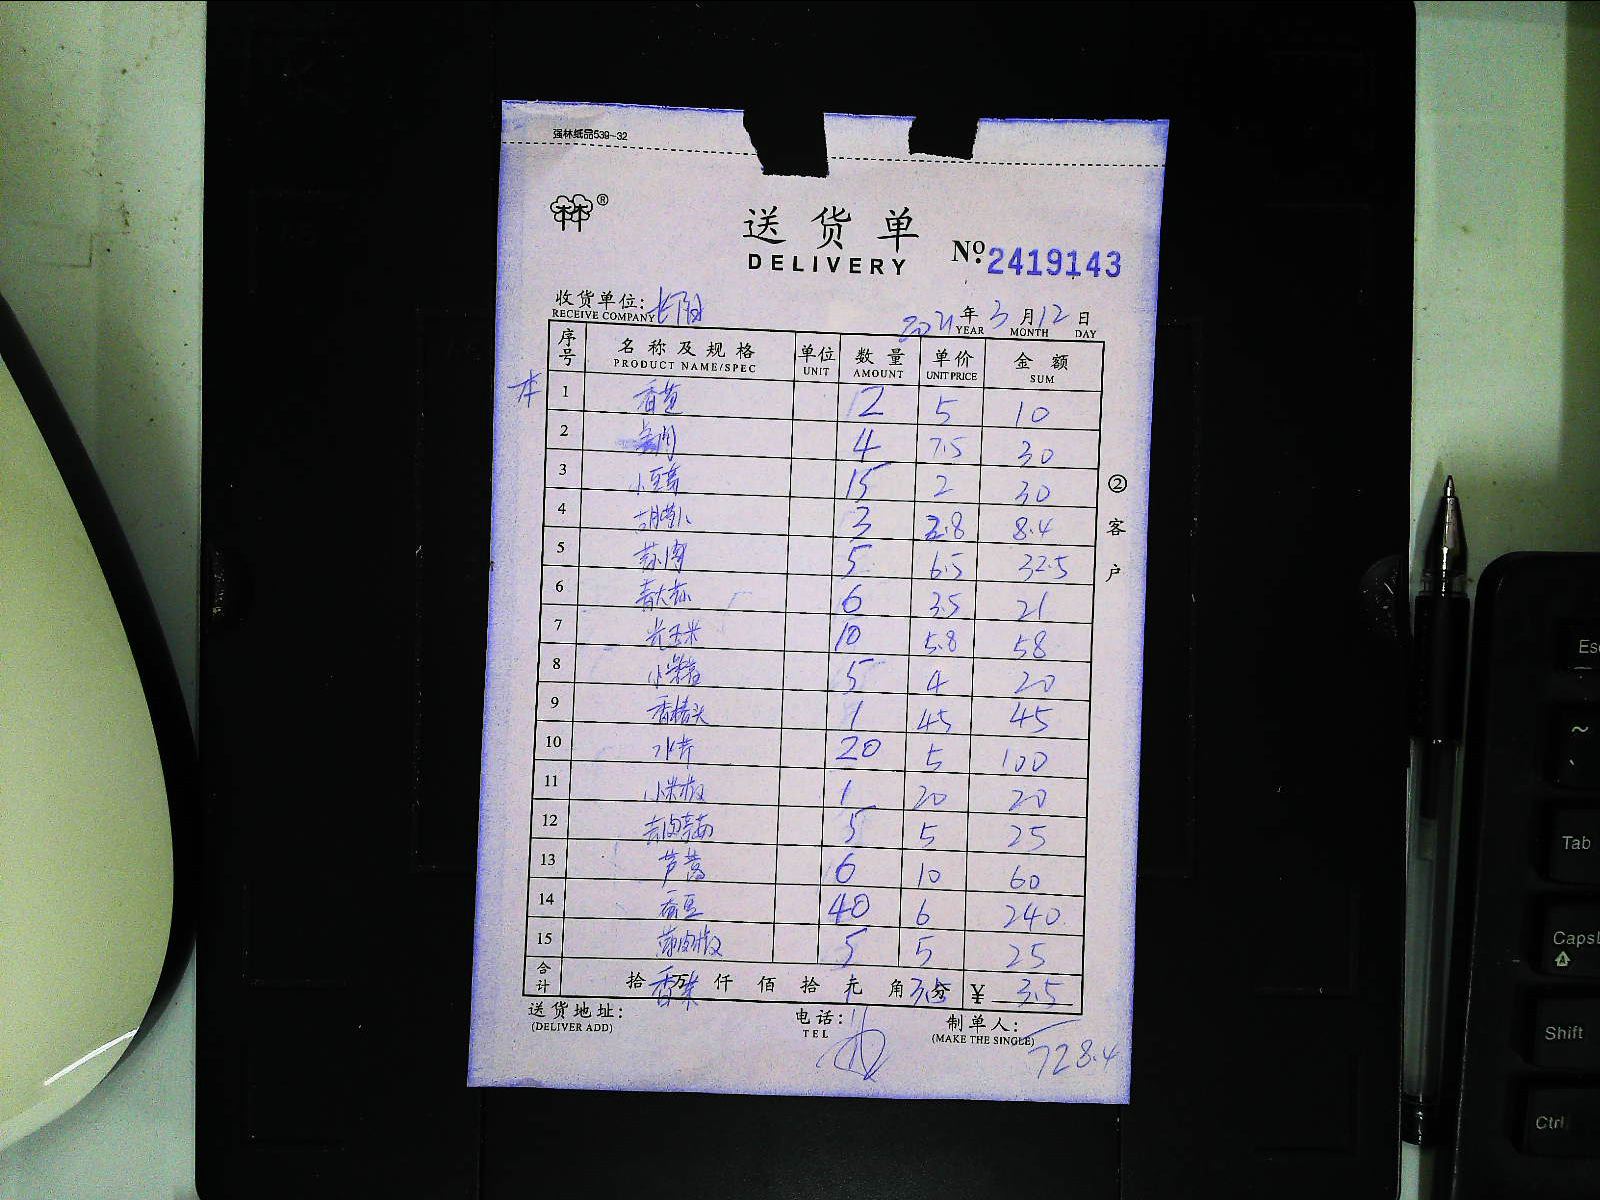 强林纸品539-32
林®
送货单
DELIVERY
No. 2419143
收货单位: 长阳
RECEIVE COMPANY
2021年3月12日
YEAR MONTH DAY
序号 名称及规格 单位 数量 单价 金额
PRODUCT NAME/SPEC UNIT AMOUNT UNIT PRICE SUM
1 12 5 10
2 4 7.5 30
3 15 2 30
4 胡萝卜 3 2.8 8.4
5 5 6.5 32.5
6 青大蒜 6 3.5 21
7 光玉米 10 5.8 58
8 5 4 20
9 1 45 45
10 水芹 20 5 100
11 小米椒 1 20 20
12 5 5 25
13 芦蒿 6 10 60
14 蚕豆 40 6 240
15 薄皮椒 5 5 25
合计 拾 万 仟 佰 拾 元 角 分 ¥ 3.5
香菜 1 3.5
送货地址: 电话: 制单人:
(DELIVER ADD) TEL (MAKE THE SINGLE)
728.4
②客户
Esc
~
Tab
Caps
Shift
Ctrl